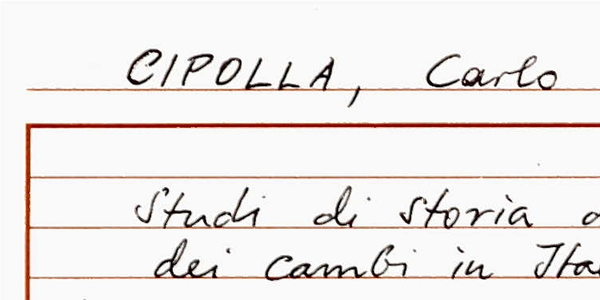 CIPOLLA, Carlo
Studi di storia
dei cambi in Ita